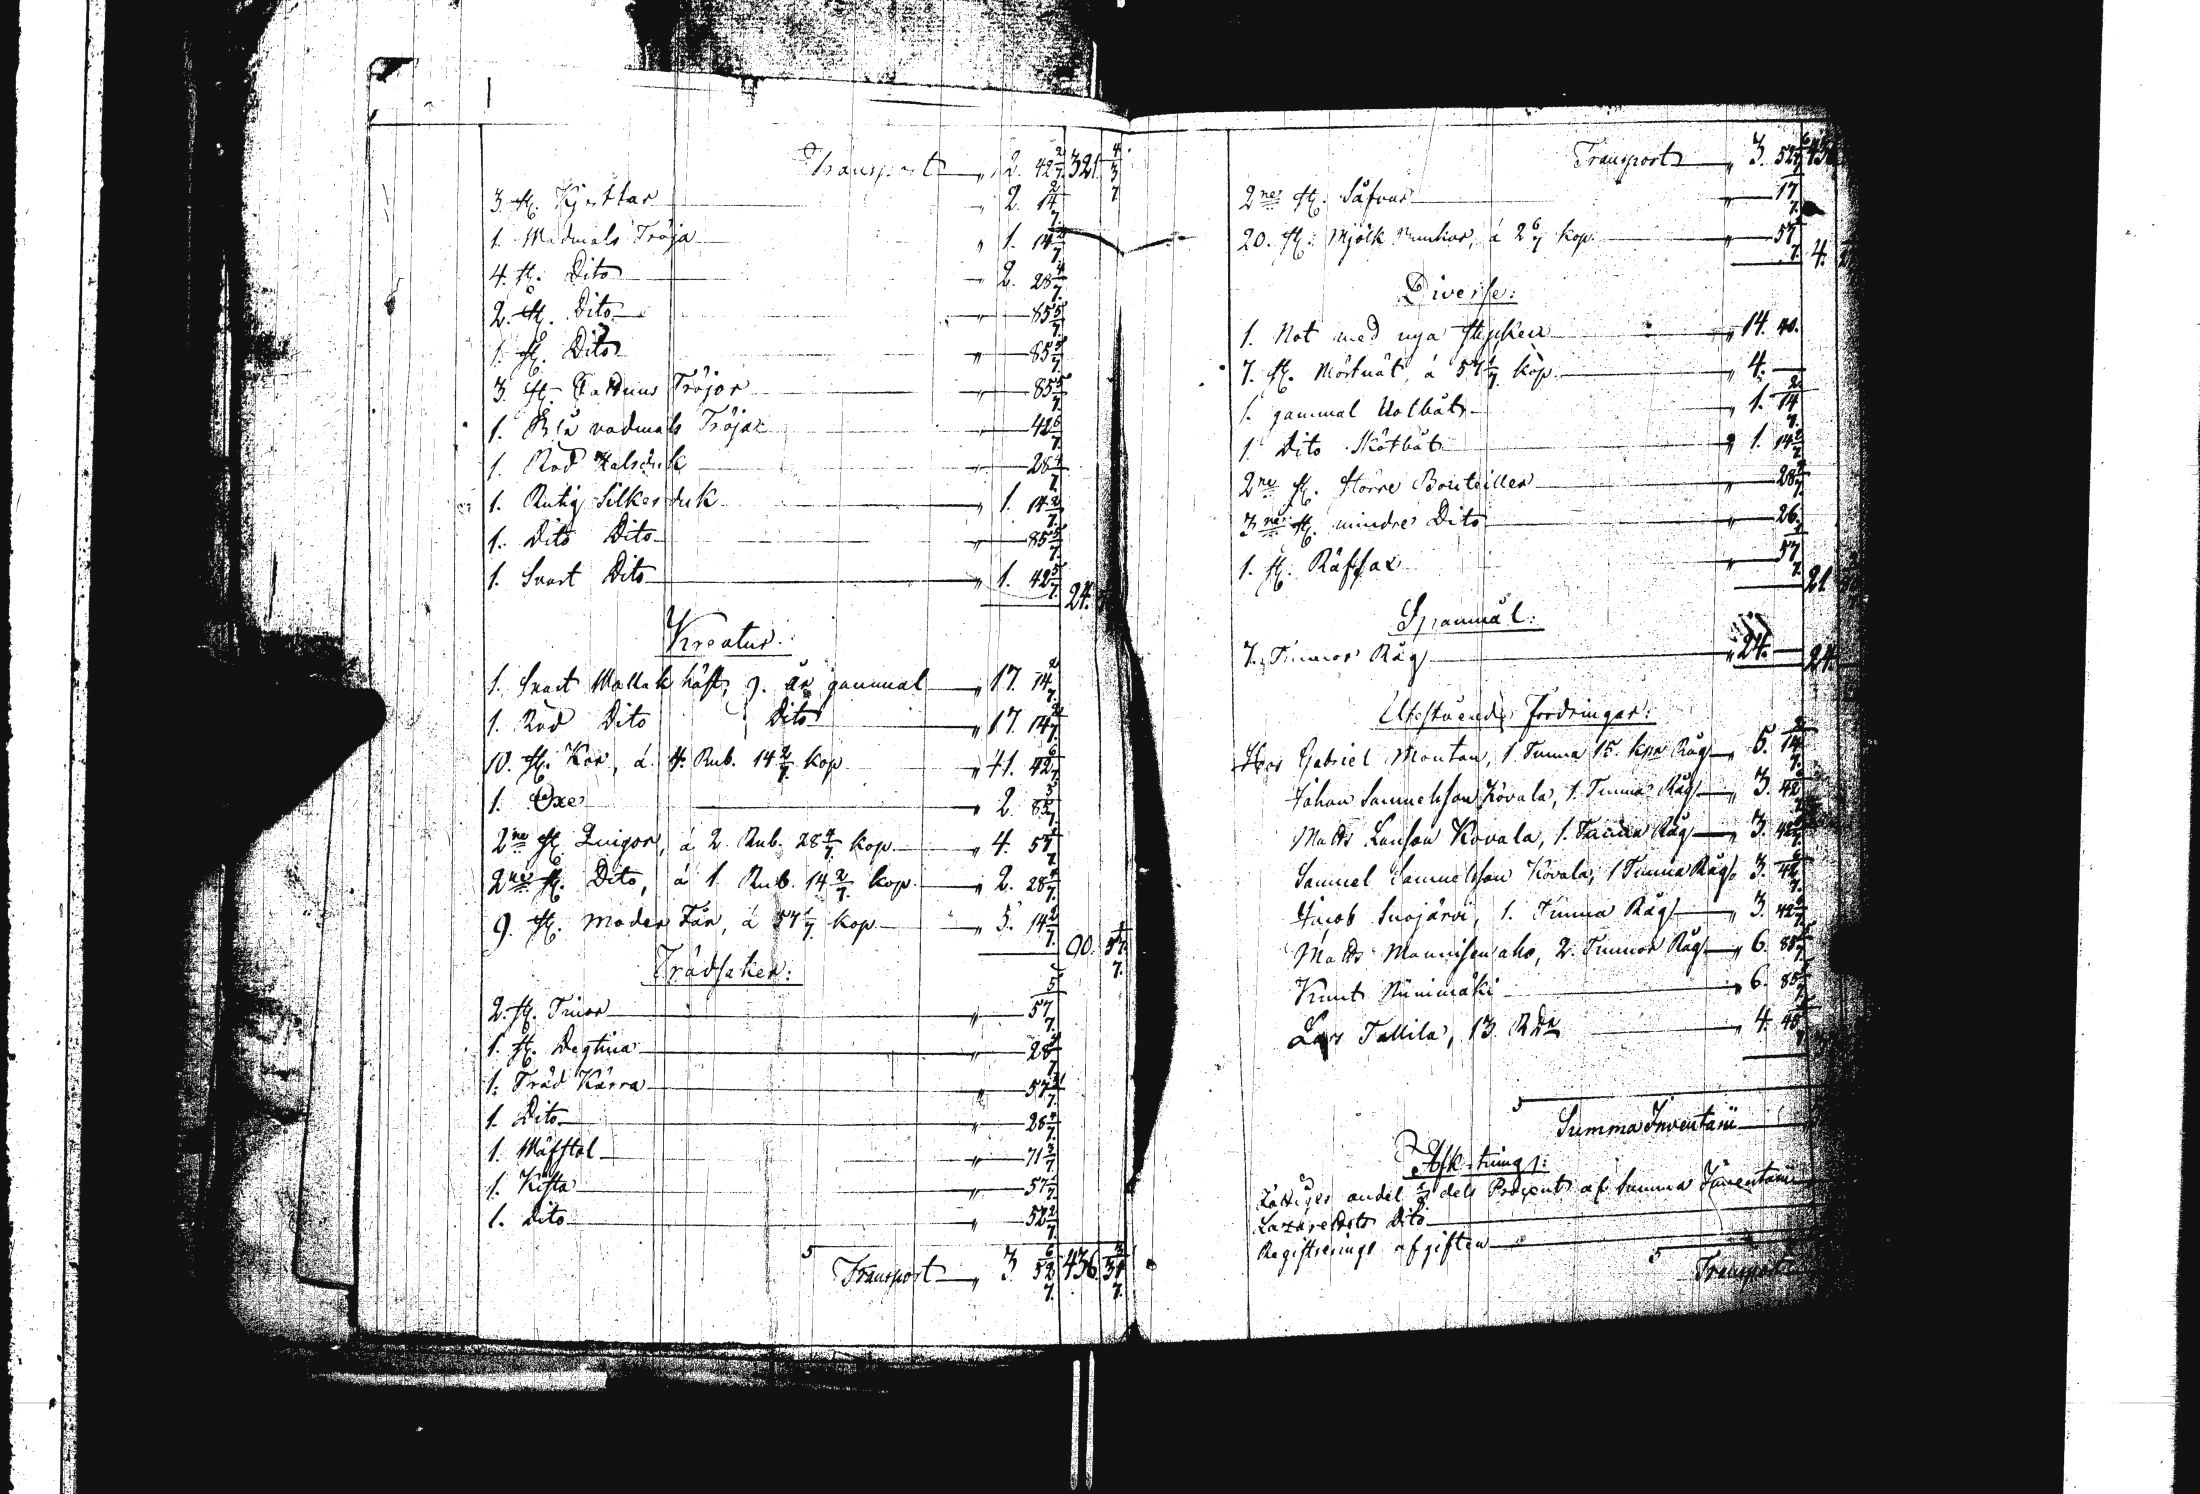 Transport " 2. 42 2/7. 321. 4 3/7
3. st. Kjettar " 2. 14 2/7.
1. Wadmals Tröja " 1. 14 2/7
4. st. Dito " 2. 28 4/7.
2. st. Dito " 85 5/7
1. st. Dito " 85 5/7.
3. st. Tröjor " 85 5/7.
1. Blå vadmals Tröja " 42 6/7.
1. Röd Halsduk " 28 4/7.
1. Rutig Silkes duk " 1. 14 2/7.
1. Dito Dito " 85 5/7.
1. Svart Dito " 1. 42 6/7. 24.
Kreatur:
1. Svart Wallak häst, 9. år gammal " 17. 14 2/7.
1. Röd Dito Dito " 17. 14 2/7.
10. st. Kor, á 4. Rub. 14 2/7. kop " 41. 42 6/7.
1. Oxe " 2. 85 5/7
2ne st. Qvigor, á 2. Rub. 28 4/7. kop " 4. 57 1/7.
2ne st. Dito, á 1. Rub. 14 2/7. kop. " 2. 28 4/7.
9. st. moder Får, á 57 1/7 kop " 5. 14 2/7. 90. 57 1/7.
Trädsaker:
2. st. Tinor " 57 /7.
1. st. Degtina " 28 4/7
1. Träd Kärra " 57 1/7.
1. Dito " 28 4/7.
1. Wäfstol " 71 3/7.
1. Kista " 57 1/7.
1. Dito " 52 2/7.
Transport " 3. 52 6/7. 436. 3/7.
Transport " 3. 52 6/7 436
2ne st. Såfvar " 17 1/7.
20. st. Mjölk Bunkar, á 2 6/7 kop " 57 1/7. 4.
Diverse:
1. Not med nya " 14. 40.
7. st. Mörtnät, á 57 1/7. kop " 4.
1. gammal Notbåt " 1. 14 2/7.
1. Dito Skötbåt " 1. 14 2/7
2ne st. Större Bouteiller " 28 4/7.
3ne st. mindre Dito " 26.
1. st. Räfsax " 57 1/7. 21
Spanmål:
7. Tunnor Råg " 24. 24.
Utestående Fordringar:
Hos Gabriel Montan, 1. Tunna 15. kpr Råg " 5. 14 2/7.
Johan Samuelsson Kovala, 1. Tunna Råg " 3. 42 6/7
Matts Larsson Kovala, 1. Tunna Råg " 3. 42 6/7
Samuel Samuelsson Kovala, 1 Tunna Råg " 3. 42 6/7.
Jacob Suojärvi, 1. Tunna Råg " 3. 42 6/7
Matts aho, 2. Tunnor Råg " 6. 85 5/7
Knut Niinimäki " 6. 85 5/7
Lars Tallila, 13. RDr " 4. 45
Summa Inventarii
Afkortning:
Fattiges andel dels Procent af Summa Inventarii
Lazarettets Dito
Registrerings afgiften
Transport